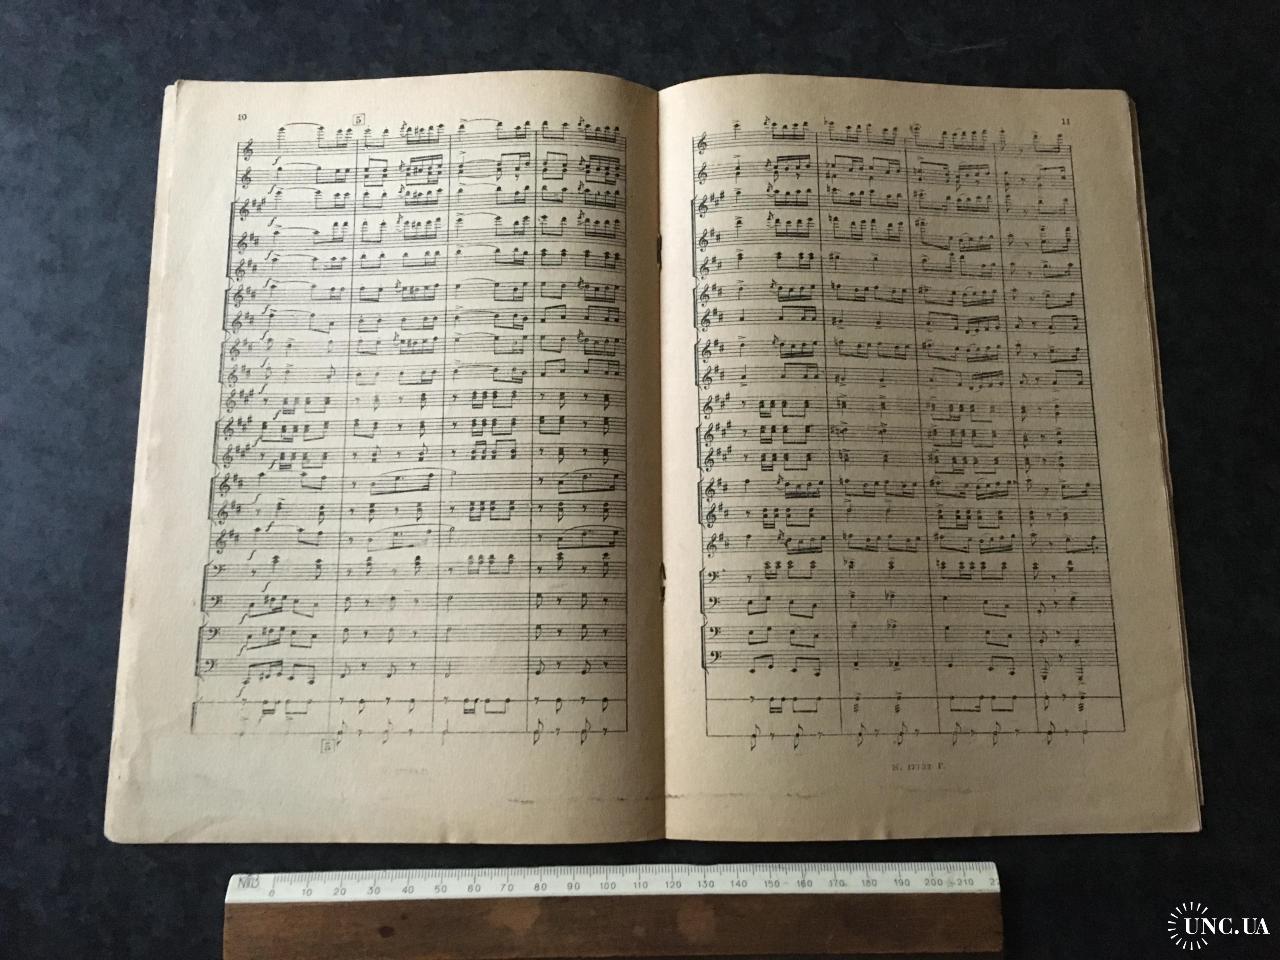 10
5
11
5
0 10 20 30 40 50 60 70 80 90 100 110 120 130 140 150 160 170 180 190 200 210
UNC.UA